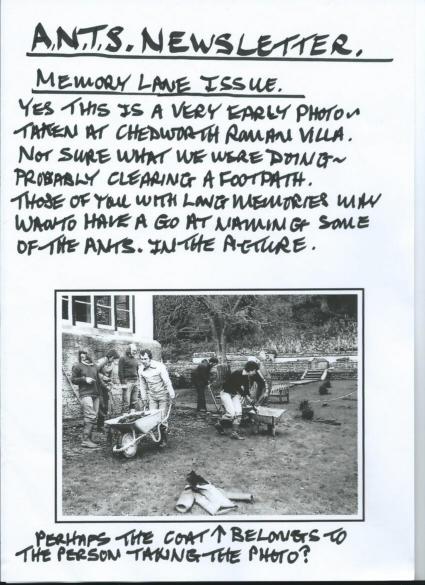 A.N.T.S. NEWSLETTER.
MEMORY LANE ISSUE.
YES THIS IS A VERY EARLY PHOTO~
TAKEN AT CHEDWORTH ROMAN VILLA.
NOT SURE WHAT WE WERE DOING~
PROBABLY CLEARING A FOOTPATH.
THOSE OF YOU WITH LONG MEMORIES MAY
WANT TO HAVE A GO AT NAMING SOME
OF THE ANTS. IN THE PICTURE.
PERHAPS THE COAT ↑ BELONGS TO
THE PERSON TAKING THE PHOTO?